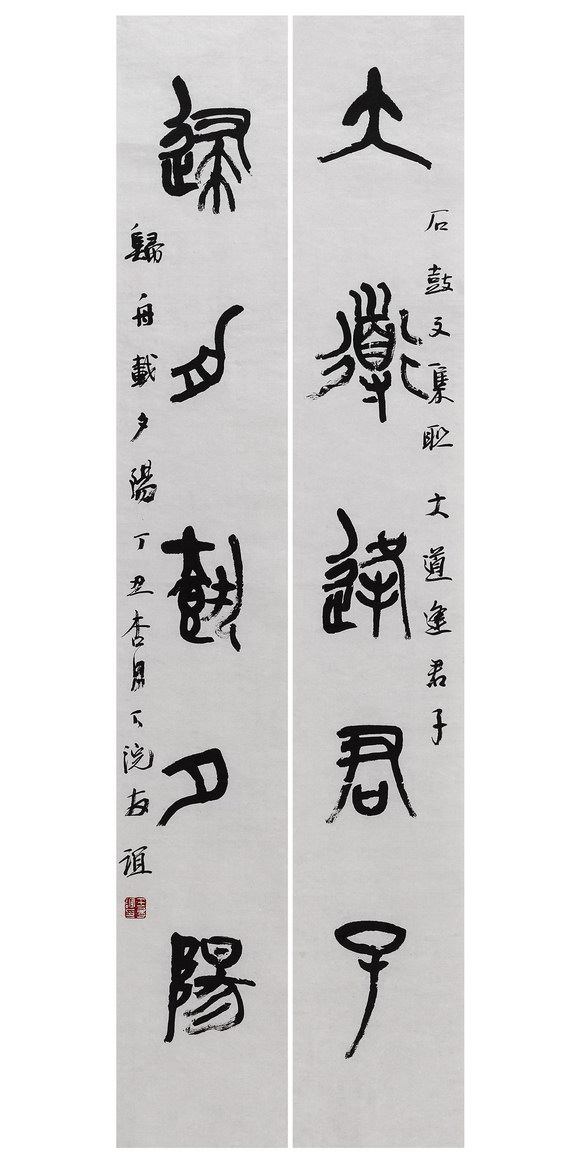 大道逢君子
石鼓文集联 大道逢君子
歸舟載夕陽
歸舟載夕陽 丁丑杏月下浣友誼